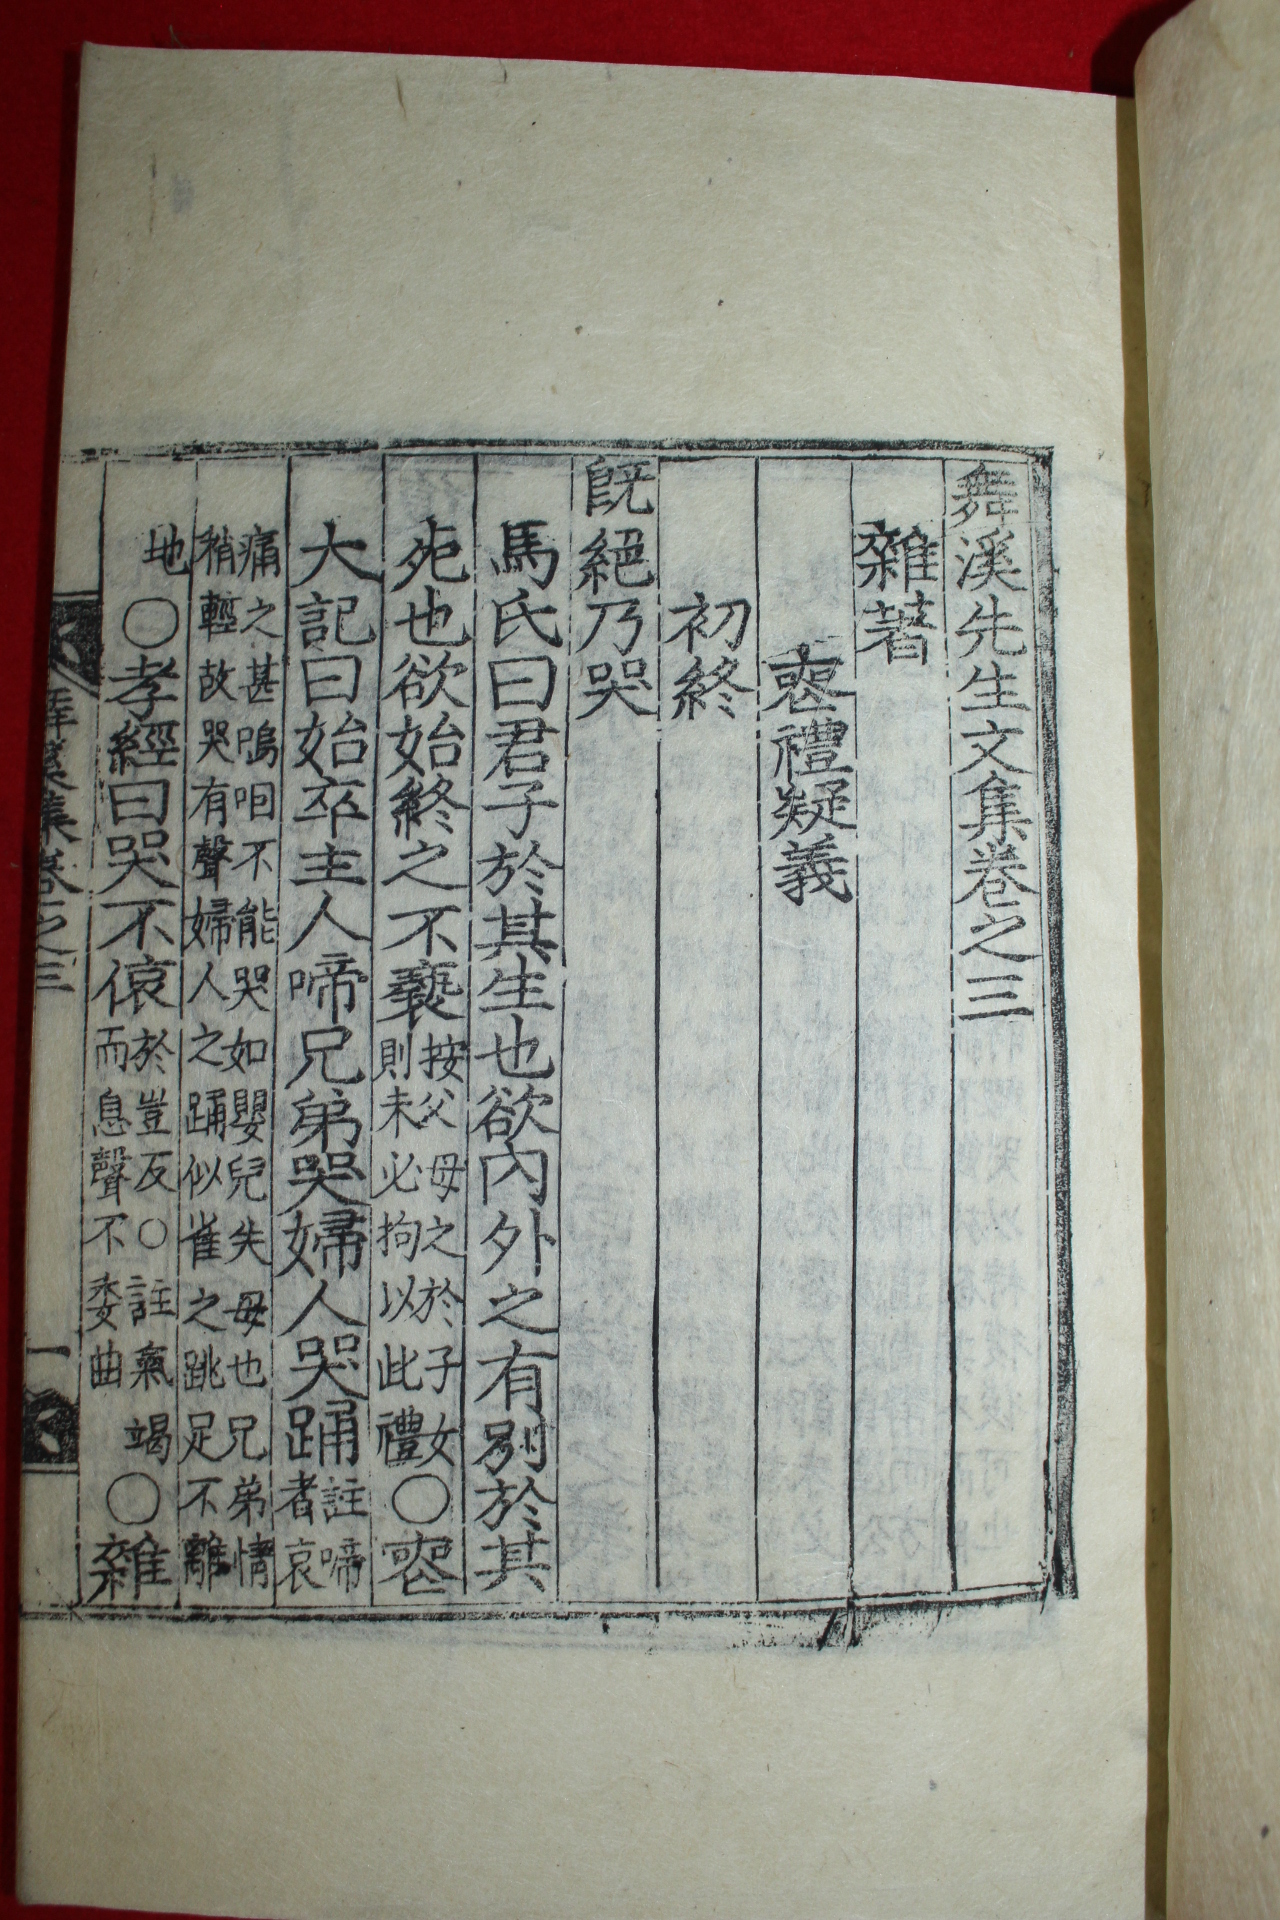 舞溪先生文集卷之三
雜著
喪禮疑義
初終
旣絕乃哭
馬氏曰君子於其生也欲內外之有別於其
死也欲始終之不褻按父母之於子女則未必拘以此禮○喪
大記曰始卒主人啼兄弟哭婦人哭踊註啼者哀
痛之甚嗚咽不能哭如嬰兒失母也兄弟情稍輕故哭有聲婦人之踊似雀之跳足不離
地○孝經曰哭不偯於豈反○註氣竭而息聲不委曲○雜
舞溪集卷之三 一